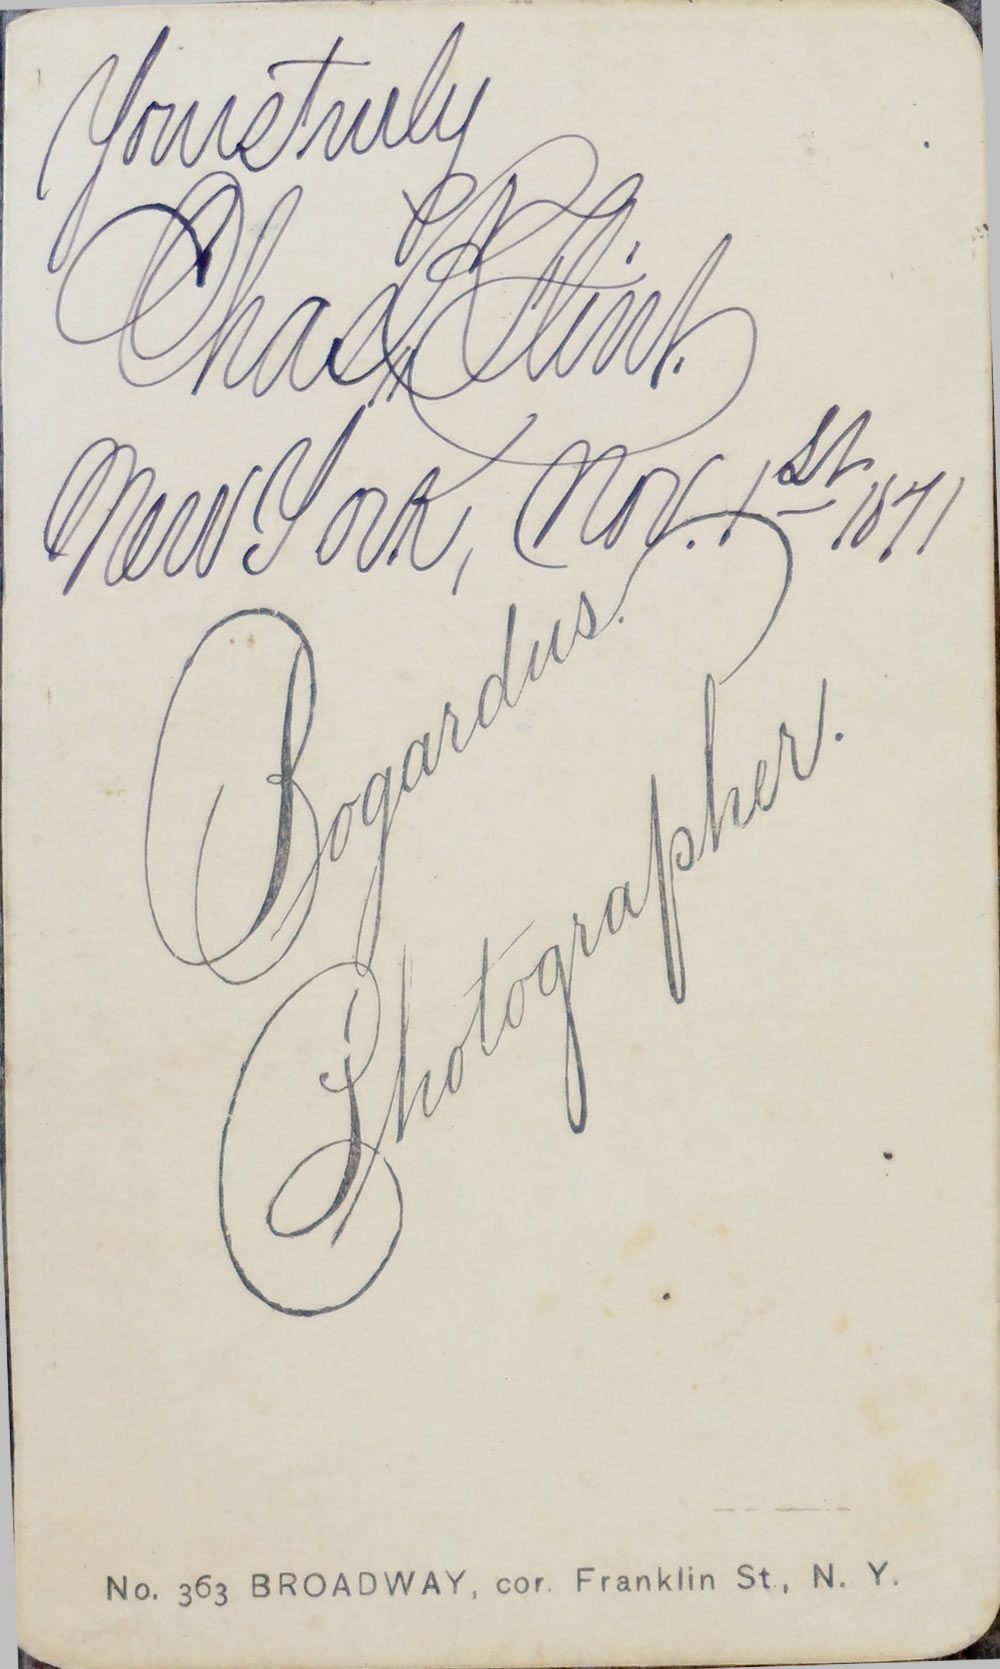 Yours truly
Chas. R. Flint.
New York, Nov. 1st 1871
Bogardus.
Photographer.
No. 363 BROADWAY, cor. Franklin St., N. Y.